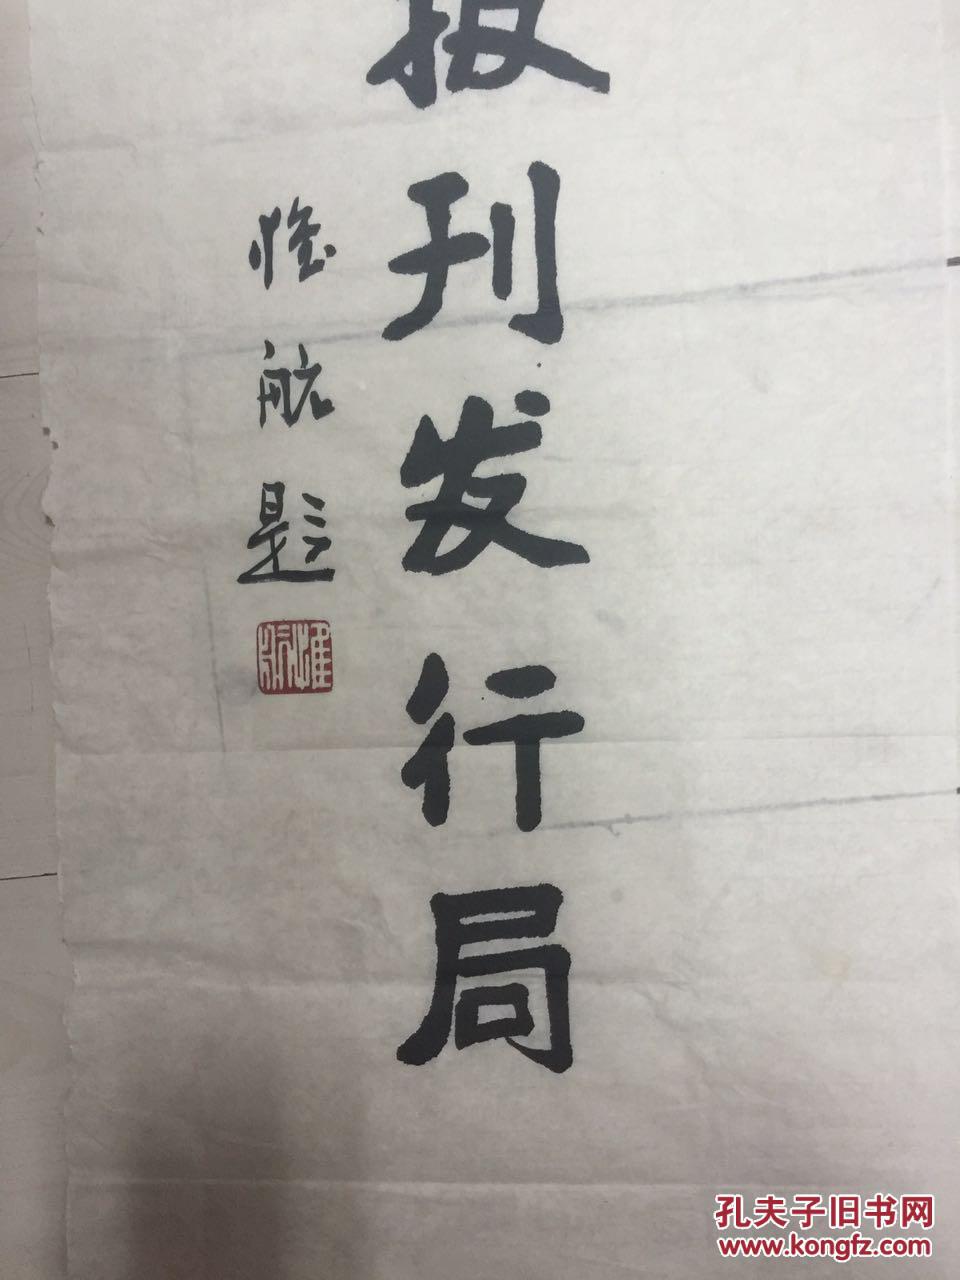 报刊发行局
惟航题
孔夫子旧书网
www.kongfz.com